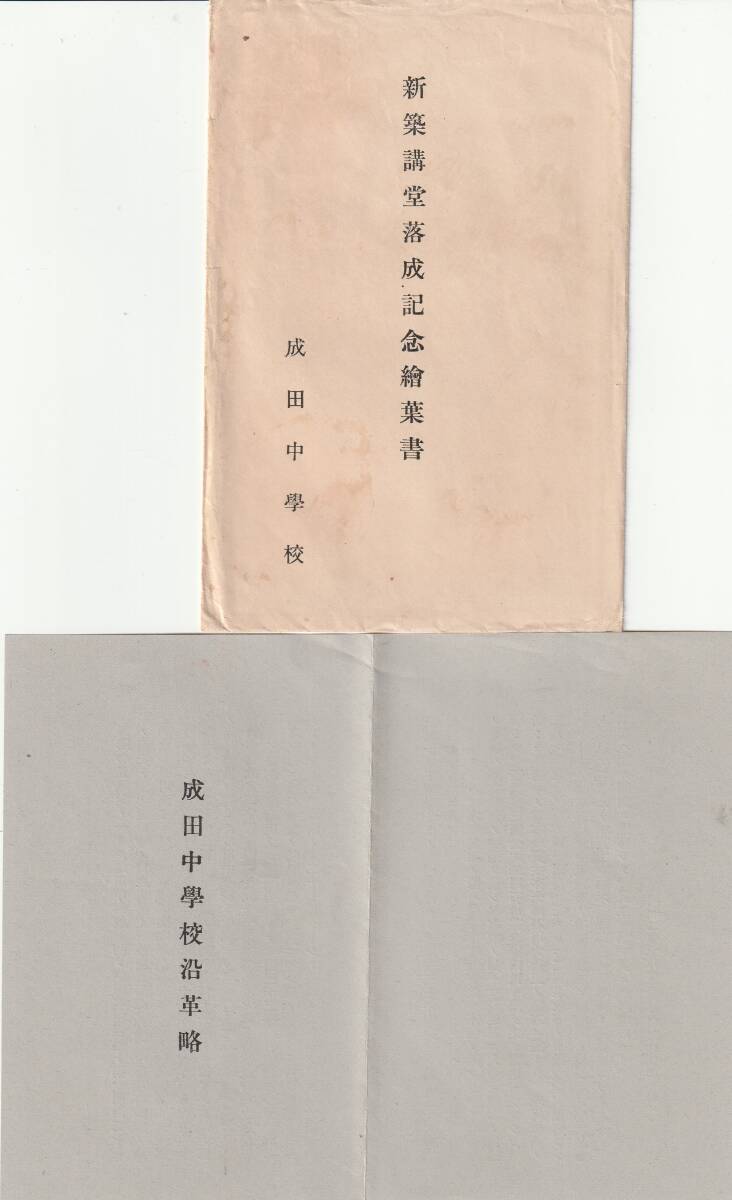 新築講堂落成記念繪葉書
成田中學校
成田中學校沿革略